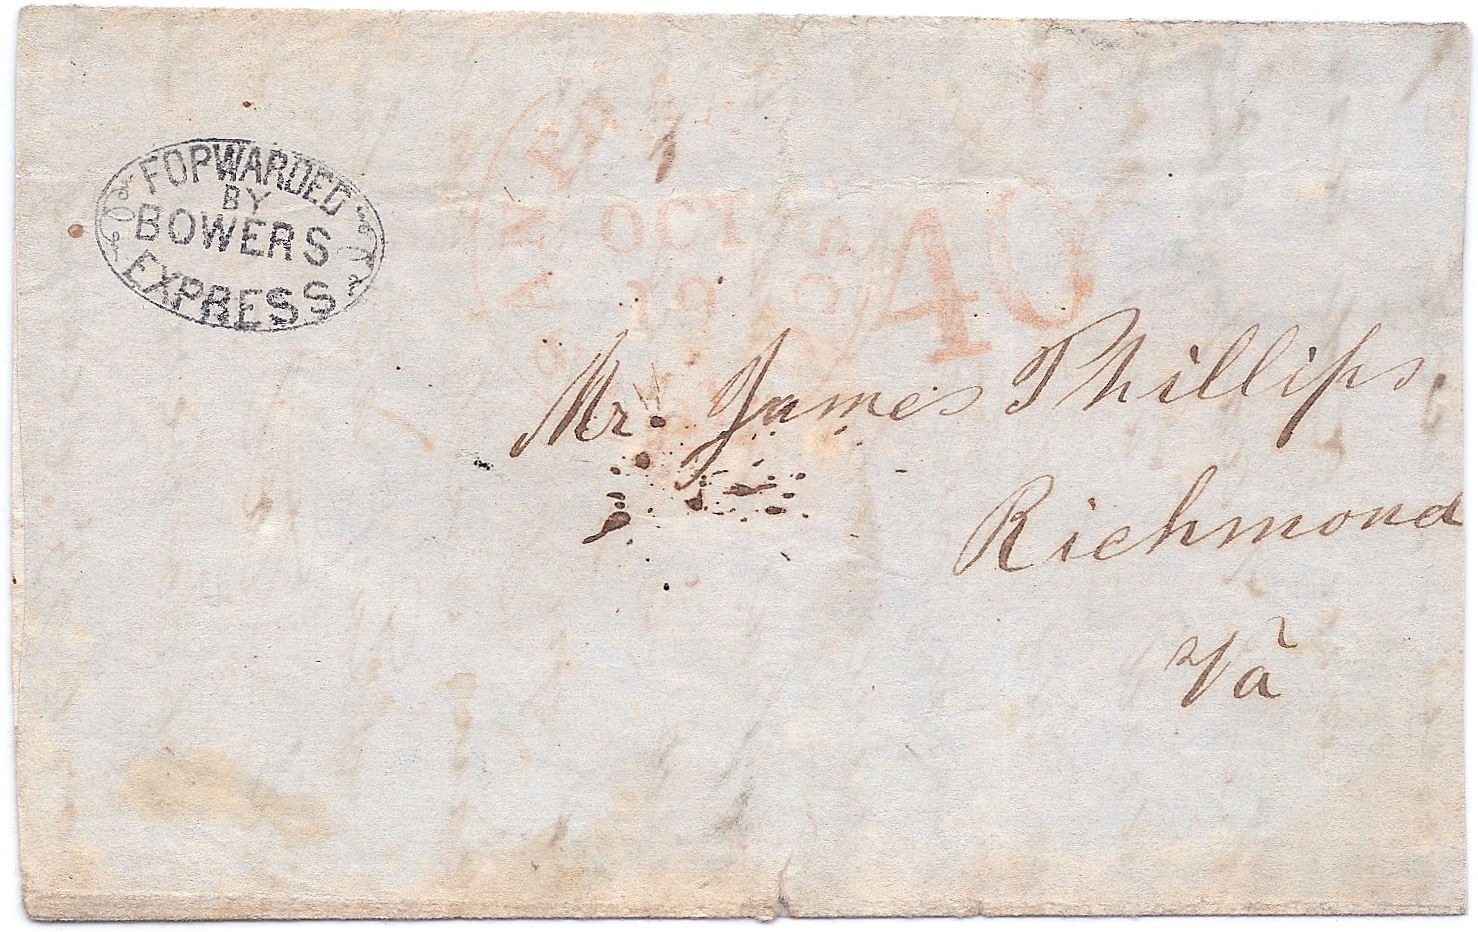 FOPWARDED
BY
BOWERS
EXPRESS
SAN
OCT
40
Mr. James Phillips,
Richmond
Va